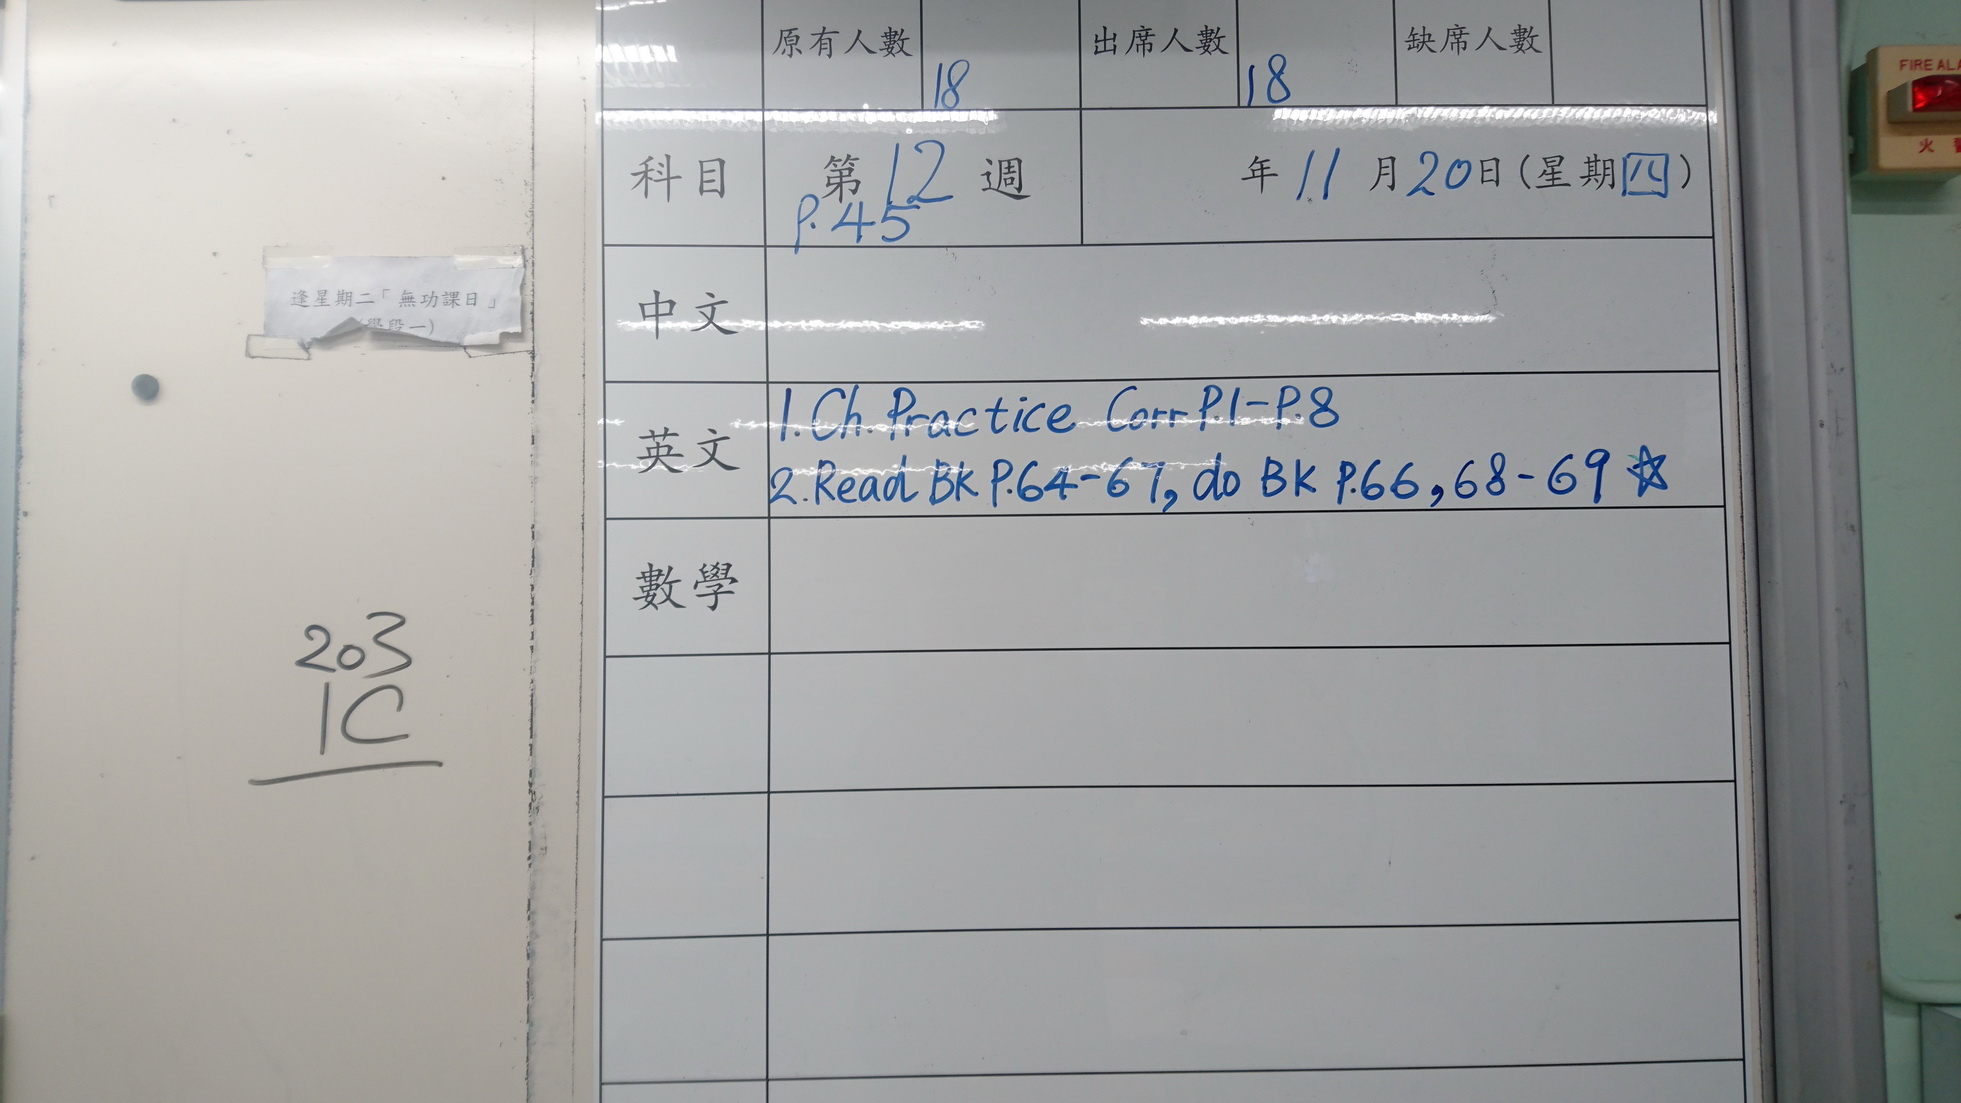 原有人數 18 出席人數 18 缺席人數
科目 第12週 年11月20日(星期四)
P.45
中文
英文 1.Ch.Practice Corr P.1-P.8
2.Read BK P.64-67, do BK P.66,68-69 ☆
數學
逢星期二「無功課日」
學段一)
203
1C
FIRE ALA
火